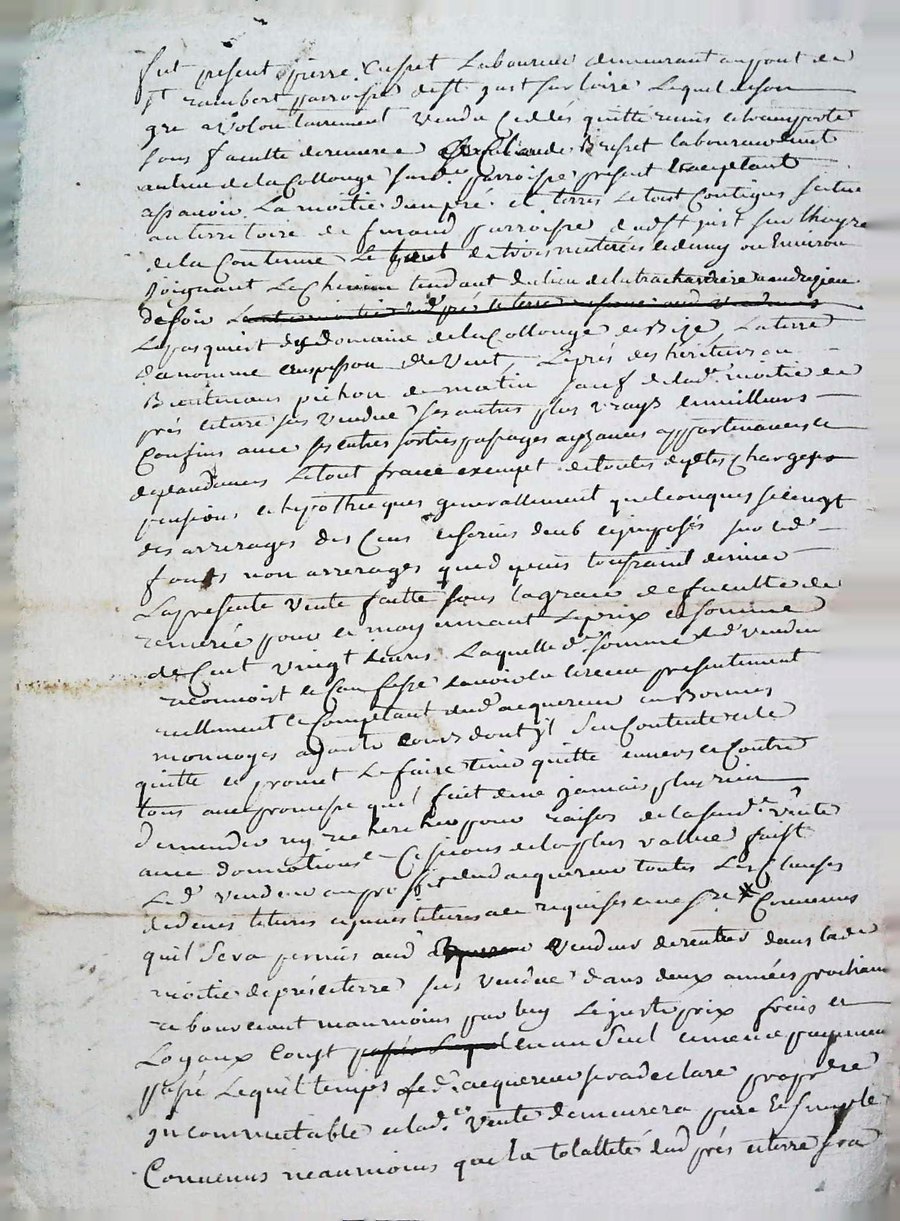 fut présent pierre Crespet Laboureur demeurant au pont de
st rambert parroisse de st just sur loire Lequel de son
gre a volontairement vendu Ceddés quitté remis et transporté
sous faculté de remeré a Claude Brespet laboureur
au lieu de la Collonge susd.e parroisse présent et acceptant
assavoir La moitié d'un pré et terres Le tout Contigus scitué
au territoire de furand parroisse dud st just sur
de la Contenue de trois meterées et demy ou Environ
Joignant Le Chemin tendant du lieu de la bracharderie a andrezieu
de soir
Le pasquier du domaine de la Collonge de Bize, La terre
du nommé de vent, Le prés des héritiers ou
Bientenans pichon de matin sauf de lad.e moitié de
prés et terre sus vendue ses autres plus vrays et meilleurs
Confins avec ses entrés sorties passages ayzances appartenances et
dependances Le tout franc et exempt de toutes dettes Charges
pensions et hypotheques generallement quelconques si ce n'est
des arrerages des Cens et servis deub et imposés sur led.
fonds non arrerages que depuis toussaint dernier
La presente vente faitte sous la grace et faculté de
remeré pour et moyennant Le prix et somme
de Cent vingt livres Laquelle d.e somme Led. vendeur
reconnoit et Confesse L'avoir eu et receu presentement
reellement et Comptant dud acquereur en Bonnes
monnoyes ayants cours dont il s'en Contente et le
quitte et promet Le faire tenir quitte envers et Contre
tous avec promesse qu'il fait de ne jamais plus rien
demander ny rechercher pour raison de la susd.e vente
avec domnations Cessions de la plus vallue faist
Led. vendeur au proffit dud acquereur toutes Les Clauses
de devestitures et investitures a ce requises et necess.re Convenus
qu'il sera permis aud vendeur de rentrer dans lad.e
moitié de prés et terre sus vendue dans deux années prochaines
en boursant neanmoins par luy Le juste prix frais et
Loyaux Coust en un seul et mesme payement
passé Lequel temps led. acquereur sera declaré propre
incommutable et lad.e vente demeurera pure et simple
Convenus neanmoins que la totallité dud prés et terre sera